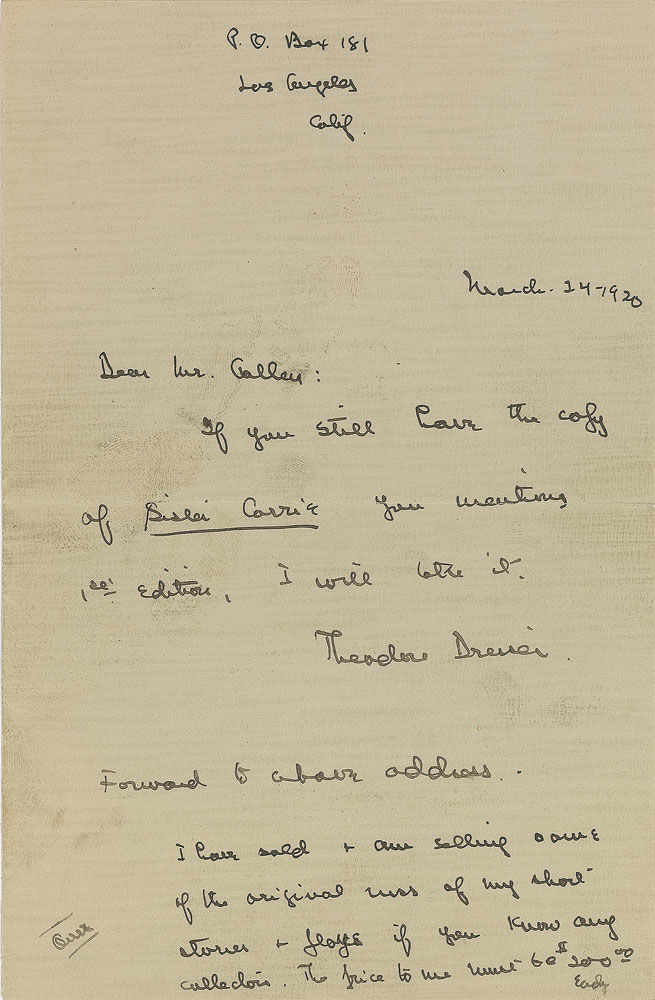 P. O. Box 181
Los Angeles
Calif.
March. 24-1920
Dear Mr. Callen:
If you still have the copy
of Sister Carrie you mention,
1st edition, I will take it.
Theodore Dreiser.
Forward to above address.
I have sold + am selling some
of the original mss of my short
stories + plays if you know any
collectors. The price to me must be $200 00
Each
Over